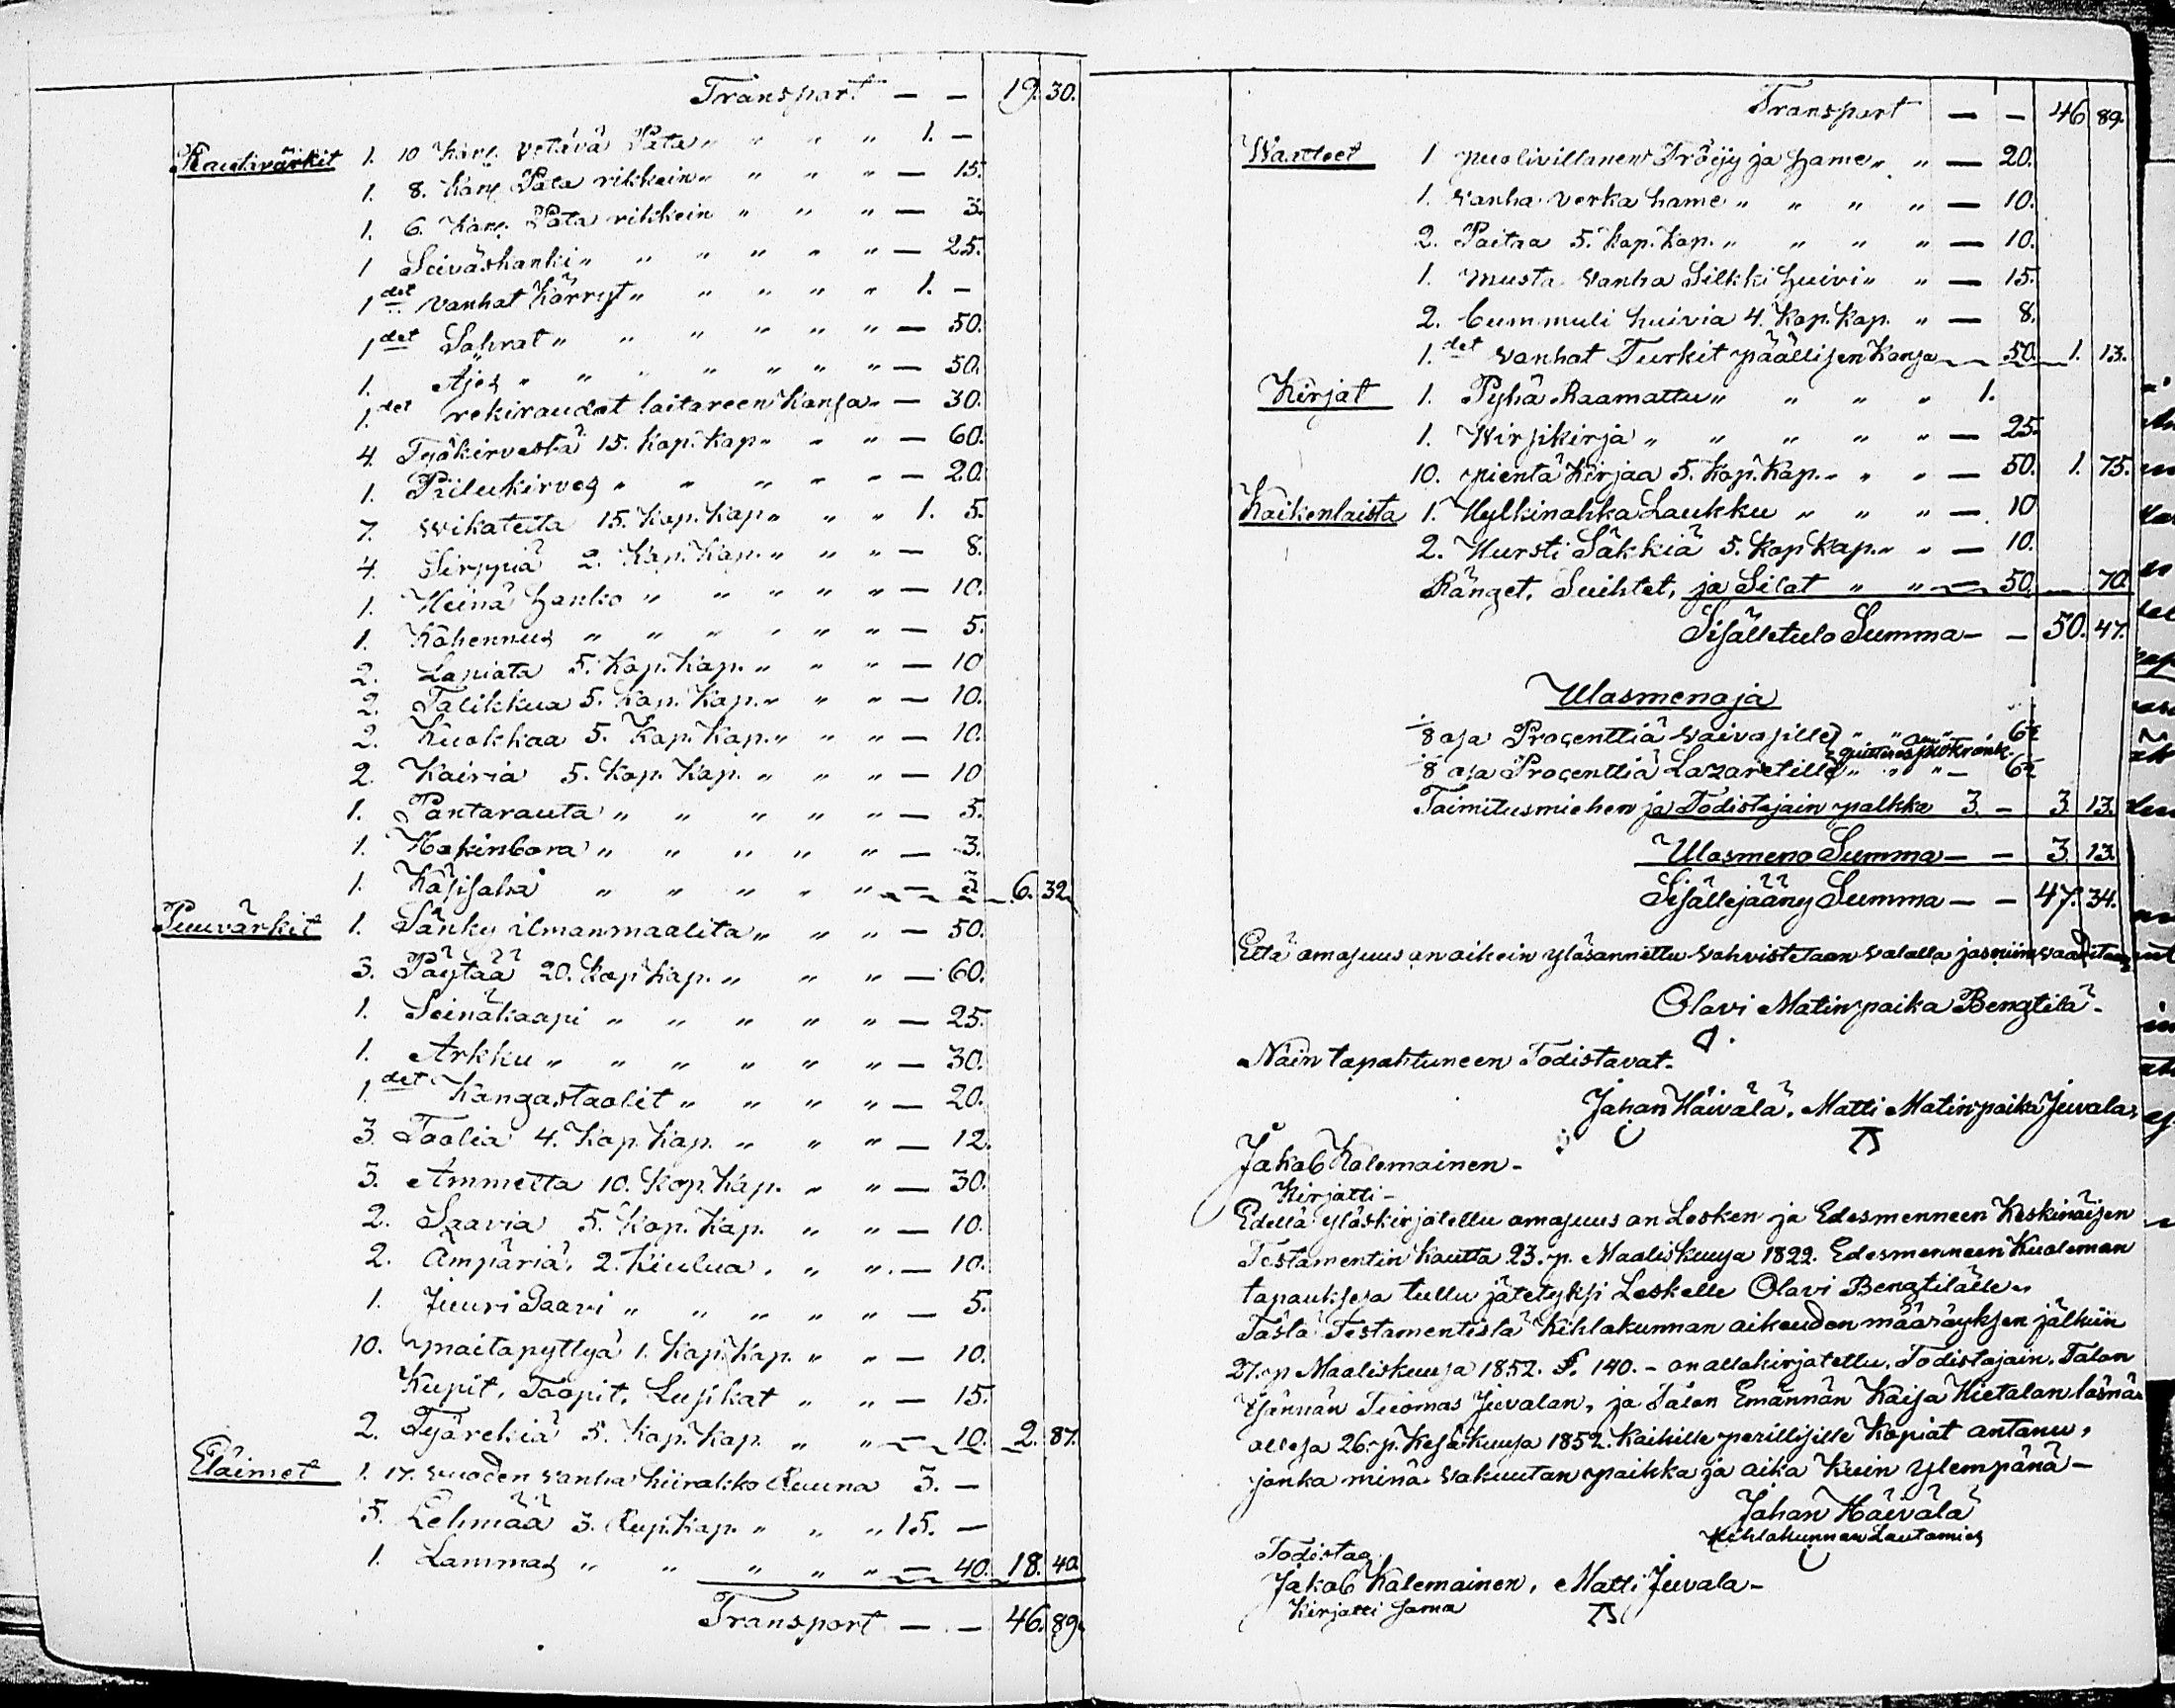 Transport — — 19. 30.
Rautivärkit 1. 10 Kan: vetävä Pata " " " " 1. —
1. 8. Kan: Pata rikkein " " " " — 15.
1. 6. Kan: Pata rikkein " " " — 3.
1 Seiväskanki " " " " " " — 25.
1 det vanhat Kärryt " " " " " 1. —
1 det Sahrat " " " " " " — 50.
1. Ajes " " " " " " " — 50.
1. det rekiraudat laitareen kansa " — 30.
4. Työkirvestä 15. Kop. Kap " " " — 60.
1. Piilukirves " " " " " — 20.
7. Wikateita 15. Kop. Kap " " " 1. 5.
4. Sirppiä 2. Kop. Kap. " " " — 8.
1. Heinä Hanko " " " " " — 10.
1. Kohennus " " " " " " — 5.
2. Lapiata 5. Kop. Kap. " " " — 10
2. Talikkua 5. Kop. Kap. " " " — 10.
2. Kuokkaa 5. Kop. Kap. " " " — 10.
2. Kairia 5. Kop. Kap. " " " — 10
1. Pantarauta " " " " " — 5.
1. Hakinbora " " " " " — 3.
1. Käsisaha " " " " " — 3 6. 32
Puuvärkit 1. Sänky ilman maalita " " " — 50.
3. Päytää 20. Kop Kap. " " " — 60.
1. Seinäkaapi " " " " " — 25.
1. Arkku " " " " " " — 30.
1. det Kangastaolit " " " " — 20.
3. Taolia 4. Kop. Kap. " " " — 12.
3. Ammetta 10. Kop. Kap. " " — 30.
2. Saavia 5. Kop. Kap. " " — 10.
2. Ämpäriä, 2. Kiulua, " " — 10.
1. Juuri Paari " " " " " — 5.
10. maitapyttyä 1. Kop. Kap. " " — 10.
Kupit, Taopit, Lusikat " " — 15.
2. Tyärekiä 5. Kop. Kap. " " — 10. 2. 87.
Eläimet 1. 17. vuoden vanha hiirakko Ruuna 3. —
5. Lehmää 3. Rup. Kap. " " " 15. —
1. Lammas " " " " " — 40. 18. 40.
Transport — — 46. 89.
Transport — — 46 89.
Waatteet 1 puolivillanen Tröijy ja Hame " " — 20.
1. Vanha verka hame " " " " — 10.
2. Paitaa 5. Kop. Kap. " " " " — 10.
1. musta Vanha Silkki Huivi " " — 15.
2. bummuli huivia 4. Kop. Kap. " — 8.
1. det vanhat Turkit päällisen Kansa — 50. 1. 13.
Kirjat 1. Pyhä Raamattu " " " " 1.
1. Wirsikirja " " " " " — 25.
10. pientä Kirjaa 5. Kop. Kap. " " " — 50. 1. 75.
Kaikenlaista 1. Hylkinahka Laukku " " " — 10
2. Hursti Säkkiä 5. Kop Kap. " " — 10.
Ränget, Suihtet, ja Silat " " — 50. — 70.
Sisälletulo Summa — — 50. 47.
Ulasmenoja
1/8 osa Procenttiä Vaivasille " " " 6½
1/8 osa Procenttiä Lazaretille " " " — 6½
Taimitusmiehen ja Todistajain palkka 3. — 3. 13.
Ulosmeno Summa — — 3 13.
Sisällejääny Summa — — 47. 34.
Että amasuus an aikein yläsannettu vahvistetaan valalla jas niin vaaditaan
Olavi Matinpaika Bengtilä.
Näin tapahtuneen Todistavat.
Jahan Häivälä, Matti Matinpaika Juvala,
Jakob Kålemainen.
Kirjatti —
Edellä yläskirjatettu amasuus an Lesken ja Edesmenneen Keskinäisen
Testamentin kautta 23. p. Maaliskuusa 1822. Edesmenneen Kuoleman
tapauksesa tullu jätetyksi Leskelle Olavi Bengtilälle.
Tästä Testamentistä Kihlakunnan aikeuden määräyksen jälkiin
27. p Maaliskuusa 1852. §. 140. — an allakirjatettu, Todistajain, Talon
Isännän Tuomas Juvalan, ja Talon Emännän Kaisa Hietalan läsnä
allesa 26. p. Kesäkuusa 1852. Kaikille perillisille Kopiat antanu,
jonka minä vakuutan paikka ja aika kuin ylempänä —
Jahan Häivälä
Kihlakunnan Lautamies
Todistaa
Jakob Kålemainen, Matti Juvala —
Kirjatti sama